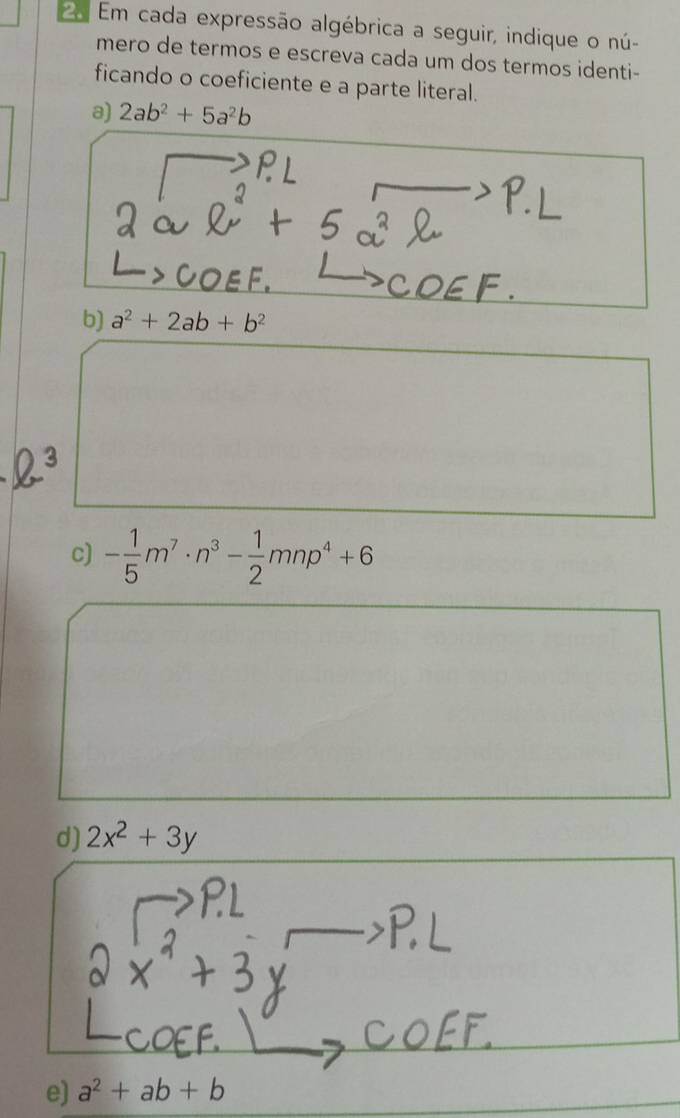 2. Em cada expressão algébrica a seguir, indique o nú-
mero de termos e escreva cada um dos termos identi-
ficando o coeficiente e a parte literal.
a) 2ab² + 5a²b
→P.L →P.L
2ab² + 5a²b
↳COEF. ↳COEF.
b) a² + 2ab + b²
b³
c) -1/5 m⁷ · n³ - 1/2 mnp⁴ + 6
d) 2x² + 3y
→P.L →P.L
2x² + 3y
COEF. → COEF.
e) a² + ab + b